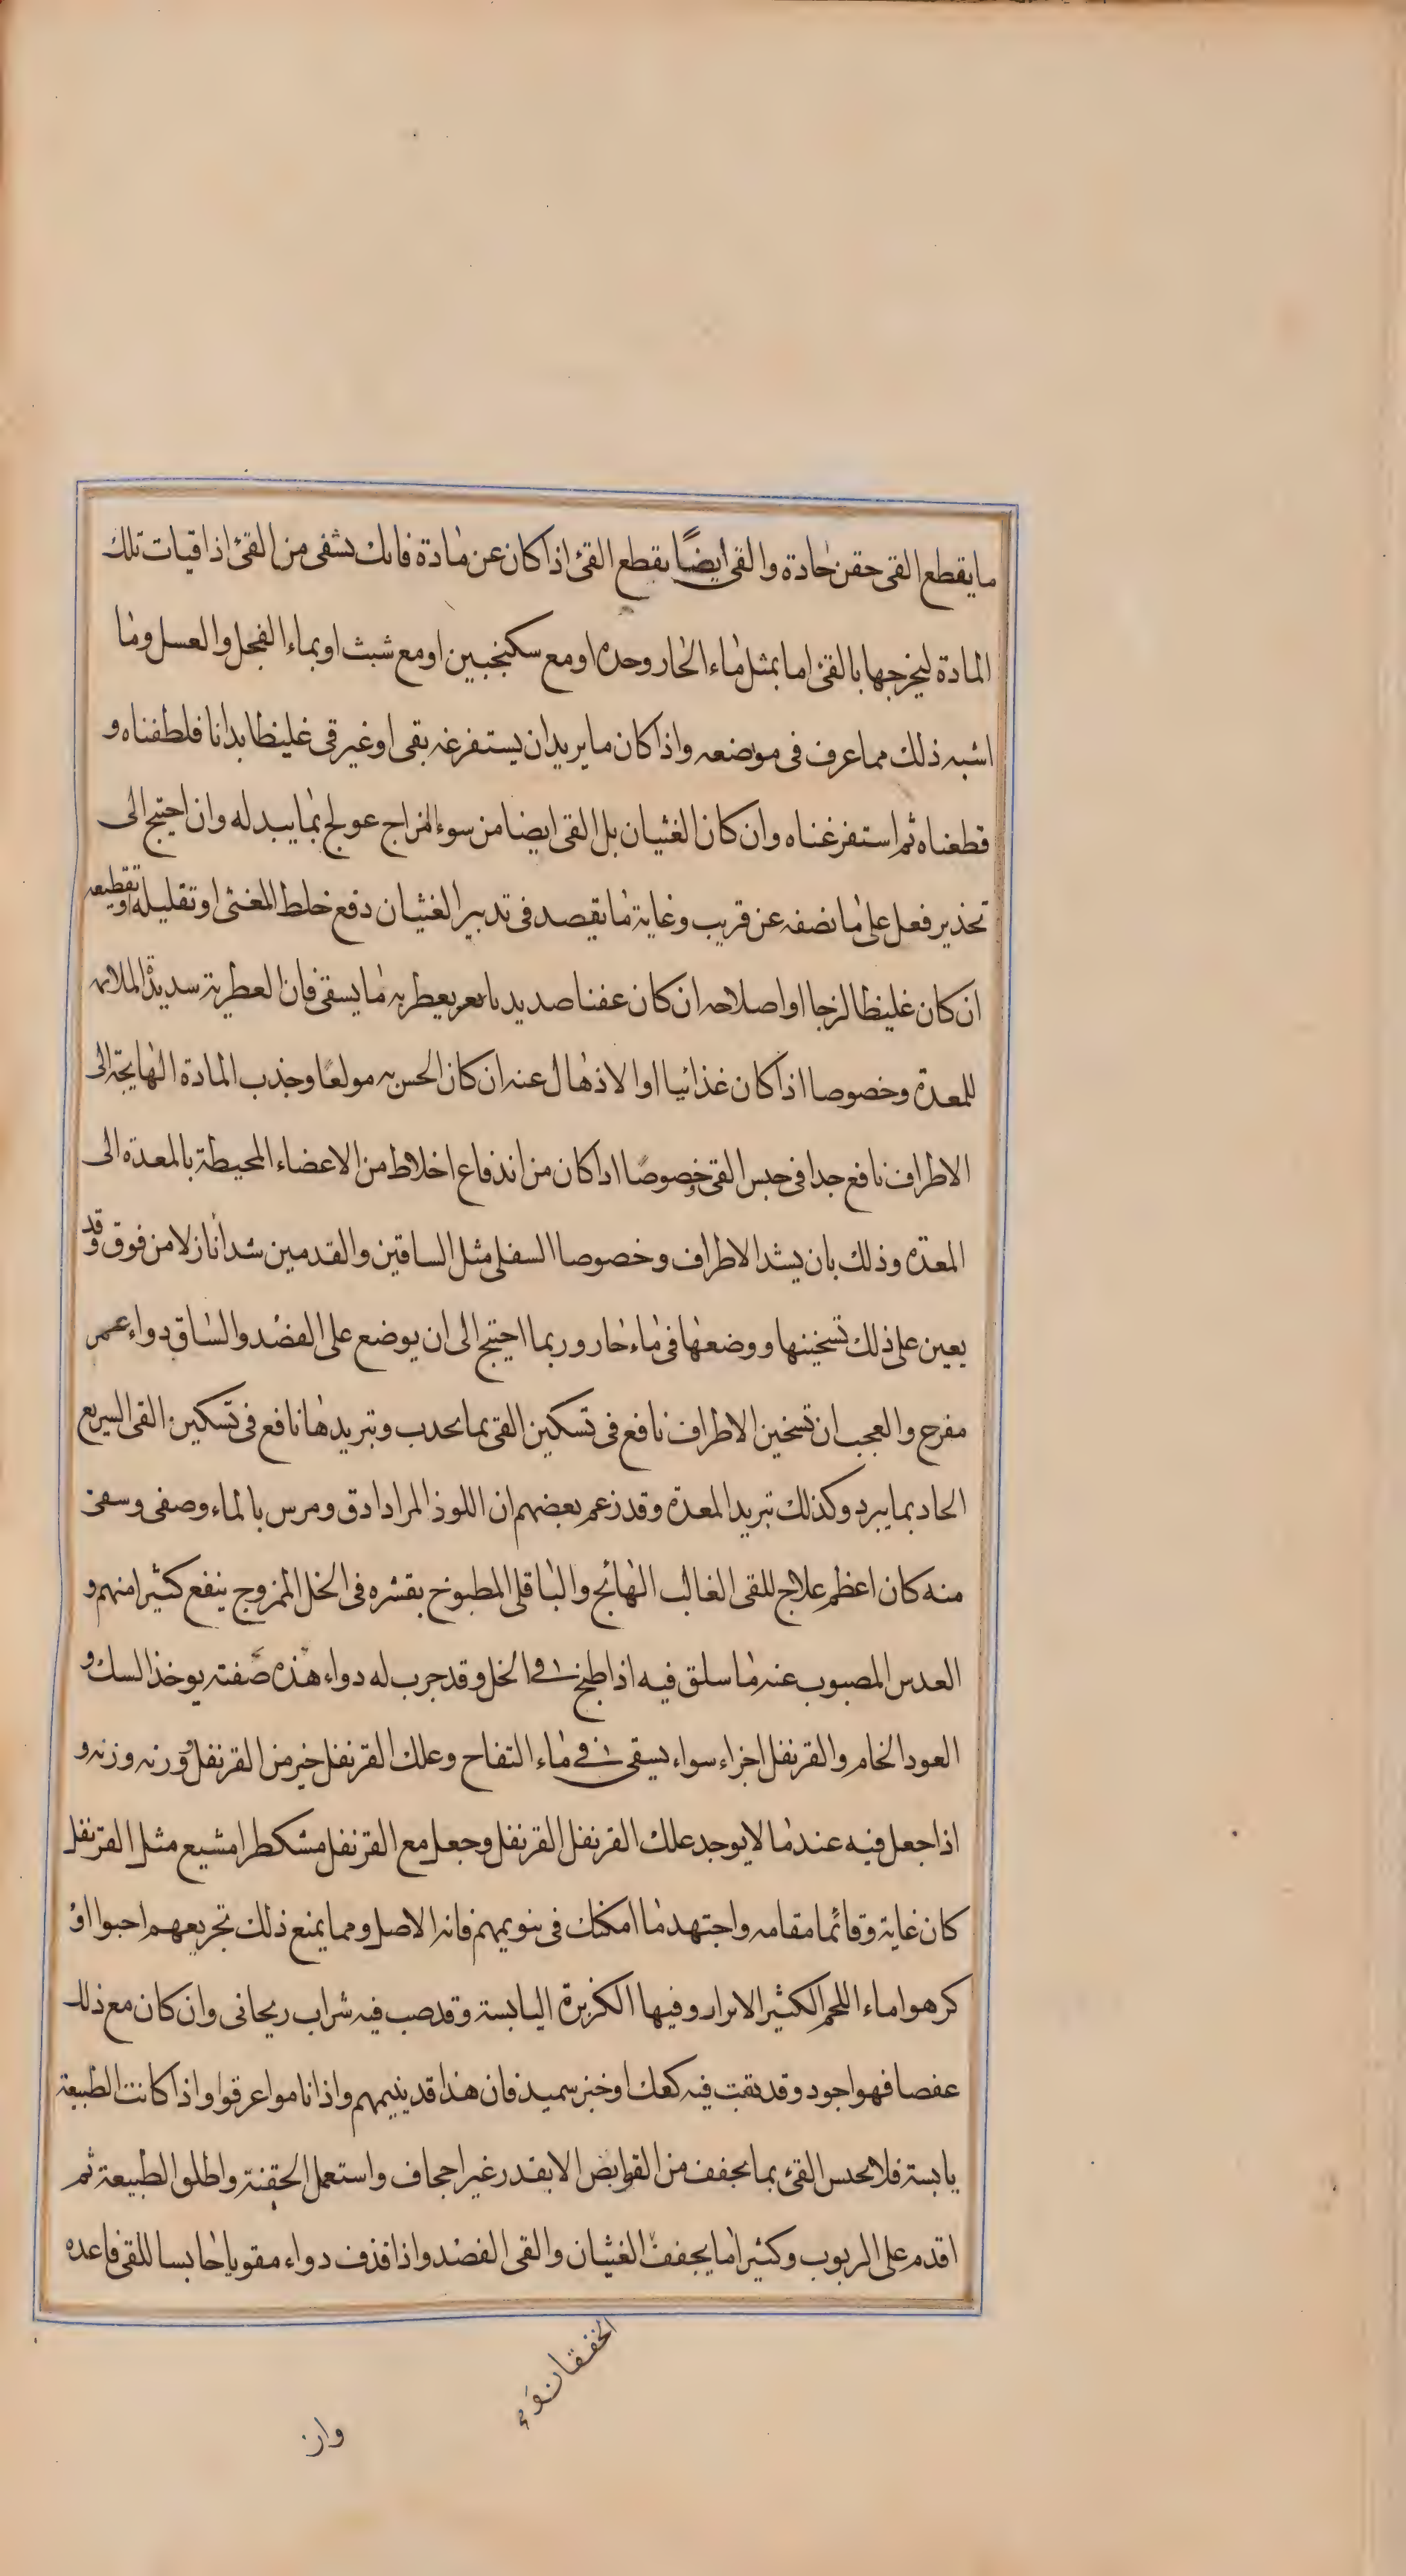 ما يقطع القى حقن حادة والقى ايضًا يقطع القئ اذا كان عن مادة فانك تشفى من القئ اذا قيات تلك
المادة ليخرجها بالقئ اما بمثل ماء الحار وحده او مع سكنجبين او مع شبث او بماء الفجل والعسل وما
اشبه ذلك مما عرف فى موضعه واذا كان ما يريد ان يستفرغه بقى او غير قى غليظا بدانا فلطفناه و
قطعناه ثم استفرغناه وان كان الغثيان بل القى ايضا من سوء المزاج عولج بما يبدله وان احتيج الى
تخذير فعل على ما نصفه عن قريب وغاية ما يقصد فى تدبير الغثيان دفع خلط المغثى او تقليله او تقطيعه
ان كان غليظا لزجا او اصلاحه ان كان عفنا صديديا بعطرية ما يسقى فان العطرية سديدة الملائمه
للمعدة وخصوصا اذا كان غذائيا او الاذهال عنه ان كان الحس به مولعًا وجذب المادة الهايجة الى
الاطراف نافع جدا فى حبس القى خصوصًا اذا كان من اندفاع اخلاط من الاعضاء المحيطة بالمعدة الى
المعدة وذلك بان يشد الاطراف وخصوصا السفلى مثل الساقين والقدمين شدا نازلا من فوق وقد
يعين على ذلك تسخينها ووضعها فى ماء حار وربما احتيج الى ان يوضع على العضد والساق دواء محمر
مقرح والعجب ان تسخين الاطراف نافع فى تسكين القى بما يجذب وتبريدها نافع فى تسكين القى السريع
الحاد بما يبرد وكذلك تبريد المعدة وقد زعم بعضهم ان اللوز المر اذا دق ومرس بالماء وصفى وسقى
منه كان اعظم علاج للقى الغالب الهائج والباقلى المطبوخ بقشره فى الخل الممزوج ينفع كثيرا منهم و
العدس المصبوب عنه ما سلق فيه اذا طبخ فى الخل وقد جرب له دواء هذه صفته يوخذ السك و
العود الخام والقرنفل اجزاء سواء يسقى فى ماء التفاح وعلك القرنفل خير من القرنفل وزنه وزنه و
اذا جعل فيه عند ما لا يوجد علك القرنفل القرنفل وجعل مع القرنفل مشكطرامشيع مثل القرنفل
كان غاية وقائما مقامه واجتهد ما امكنك فى تنويمهم فانه الاصل ومما يمنع ذلك تجريعهم احبوا او
كرهوا ماء اللحم الكثير الابزار وفيها الكزبرة اليابسة وقد صب فيه شراب ريحانى وان كان مع ذلك
عفصا فهو اجود وقد يفت فيه كعك او خبز سميذ فان هذا قد ينيمهم واذا ناموا عرقوا واذا كانت الطبيعة
يابسة فلا تحبس القئ بما يجفف من القوابض الا بقدر غير اجحاف واستعمل الحقنة واطلق الطبيعة ثم
اقدم على الربوب وكثيرا ما يجفف الغثيان والقى الفصد واذا قذف دواء مقويا حابسا للقى فاعده
وان